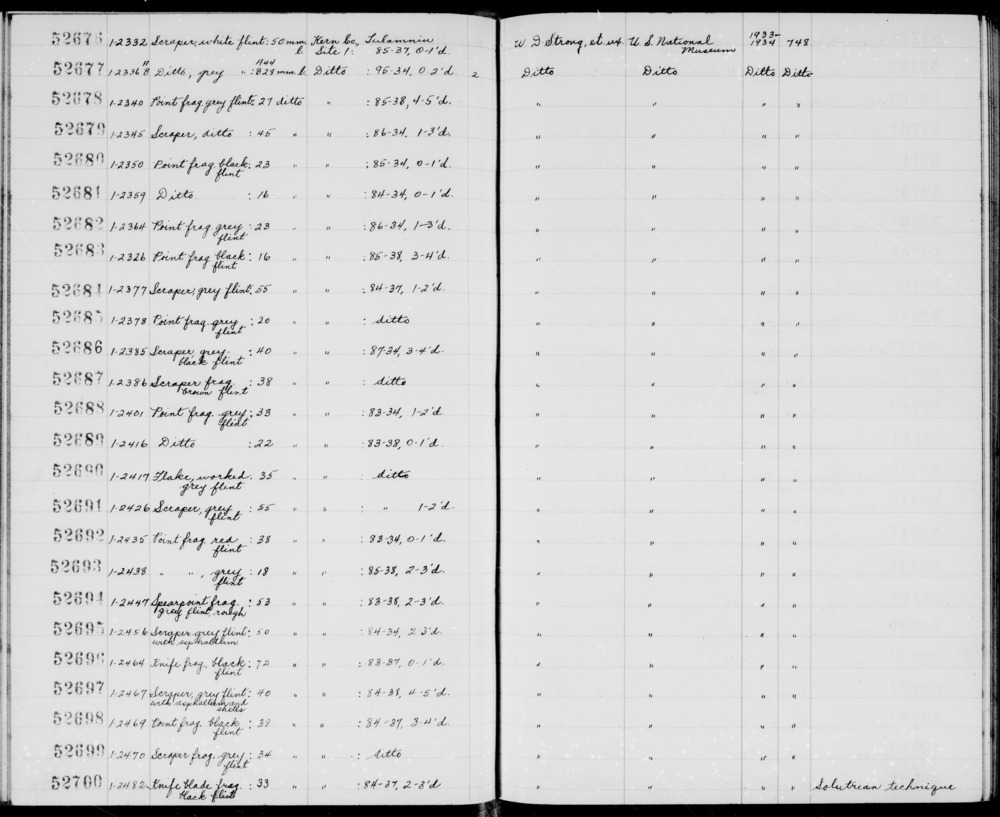 52676 1-2332 Scraper, white flint: 50 mm. Kern Co., Tulamniu W. D. Strong, et al. U. S. National 1933- 748
l. Site 1: 85-37, 0-1'd. Museum 1934
52677 1-2336 Ditto, grey " : mm. l. Ditto : 95-34, 0-2'd. 2 Ditto Ditto Ditto Ditto
52678 1-2340 Point frag. grey flint: 27 ditto " : 85-38, 4-5'd. " " " "
52679 1-2345 Scraper, ditto : 45 " " : 86-34, 1-3'd. " " " "
52680 1-2350 Point frag. black : 23 " " : 85-34, 0-1'd. " " " "
flint
52681 1-2359 Ditto : 16 " " : 84-34, 0-1'd. " " " "
52682 1-2364 Point frag. grey : 23 " " : 86-34, 1-3'd. " " " "
flint
52683 1-2326 Point frag. black : 16 " " : 85-38, 3-4'd. " " " "
flint
52684 1-2377 Scraper, grey flint: 55 " " : 84-37, 1-2'd. " " " "
52685 1-2378 Point frag. grey : 20 " " : ditto " " " "
flint
52686 1-2385 Scraper grey- : 40 " " : 87-34, 3-4'd. " " " "
black flint
52687 1-2386 Scraper frag. : 38 " " : ditto " " " "
brown flint
52688 1-2401 Point frag. grey : 33 " " : 83-34, 1-2'd. " " " "
flint
52689 1-2416 Ditto : 22 " " : 83-38, 0-1'd. " " " "
52690 1-2417 Flake, worked : 35 " " : ditto " " " "
grey flint
52691 1-2426 Scraper, grey : 55 " " : " 1-2'd. " " " "
flint
52692 1-2435 Point frag. red : 38 " " : 83-34, 0-1'd. " " " "
flint
52693 1-2438 " " , grey : 18 " " : 85-38, 2-3'd. " " " "
flint
52694 1-2447 Spearpoint frag. : 53 " " : 83-38, 2-3'd. " " " "
grey flint, rough
52695 1-2456 Scraper grey flint : 50 " " : 84-34, 2-3'd. " " " "
with asphaltum
52696 1-2464 Knife frag. black : 72 " " : 83-37, 0-1'd. " " " "
flint
52697 1-2467 Scraper, grey flint : 40 " " : 84-38, 4-5'd. " " " "
with asphaltum and
shells
52698 1-2469 Point frag. black : 38 " " : 84-37, 3-4'd. " " " "
flint
52699 1-2470 Scraper frag. grey : 34 " " : ditto " " " "
flint
52700 1-2482 Knife blade frag. : 33 " " : 84-37, 2-3'd " " " " Solutrean technique
black flint